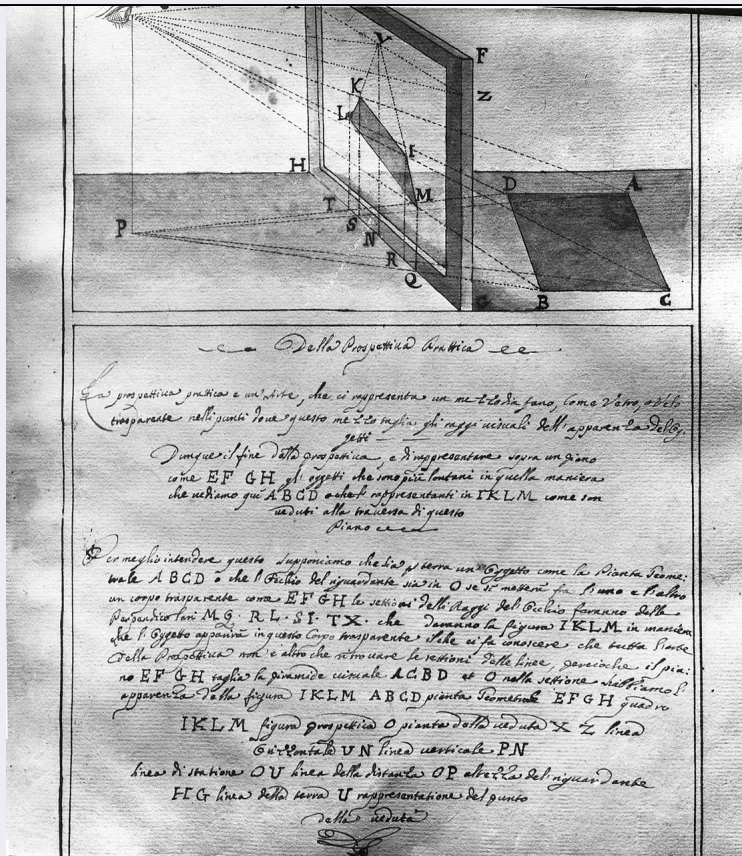 F
Z
V
K
L
I
H
M
D
A
T
S
N
P
R
Q
G
B
C
Della Prospettiva Prattica
La prospettiva prattica e un'Arte, che ci rappresenta un mezzo diafano, come Vetro, o Velo
trasparente nelli punti dove questo mezzo taglia gli raggi visuali dell'apparenza delli og:
getti
Dunque il fine della prospettiva, e di rappresentare sopra un piano
come EF GH gl'oggetti che sono più lontani in quella maniera
che vediamo qui ABCD o che si rappresentanti in IKLM come son
veduti alla traversa di questo
Piano
Per meglio intendere questo supponiamo che sia p terra un'Oggetto come la Pianta Geome:
trale ABCD o che l'Occhio del riguardante sia in O se si metterà fra l'uno e l'altro
un corpo trasparente come EFGH le settioni delli Raggi del Occhio faranno delle
Perpendicolari MQ. RL. SI. TX. che daranno la figura IKLM in maniera
che l'Oggetto apparirà in questo Corpo trasparente il che ci fa conoscere che tutta l'arte
della Prospettiva non e altro che ritrovare le settioni delle linee, percioche il pia:
no EF GH taglia la piramide visuale ACBD et O nella settione habbiamo l'
apparenza della figura IKLM ABCD pianta Geometrale EFGH quadro
IKLM figura prospettica O pianta della veduta X Z linea
Orizzontale UN linea verticale PN
linea di statione OU linea della distanza OP altezza del riguardante
HG linea della terra U rappresentatione del punto
della veduta